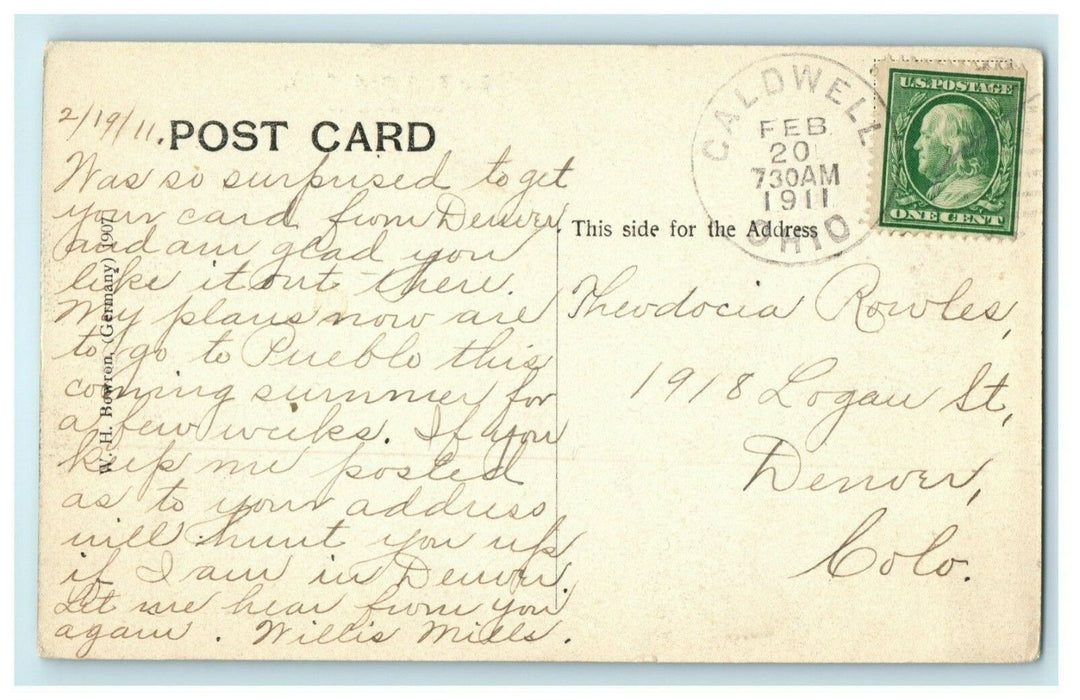 2/19/11.
POST CARD
Was so surprised to get
your card from Denver
and am glad you
like it out there.
My plans now are
to go to Pueblo this
coming summer for
a few weeks. If you
keep me posted
as to your address
will hunt you up
if I am in Denver.
Let me hear from you
again. Willis Mills.
W. H. Bowron, (Germany) 1907
CALDWELL
FEB
20
730AM
1911
OHIO
U.S. POSTAGE
ONE CENT
This side for the Address
Theodocia Rowles,
1918 Logan St,
Denver,
Colo.